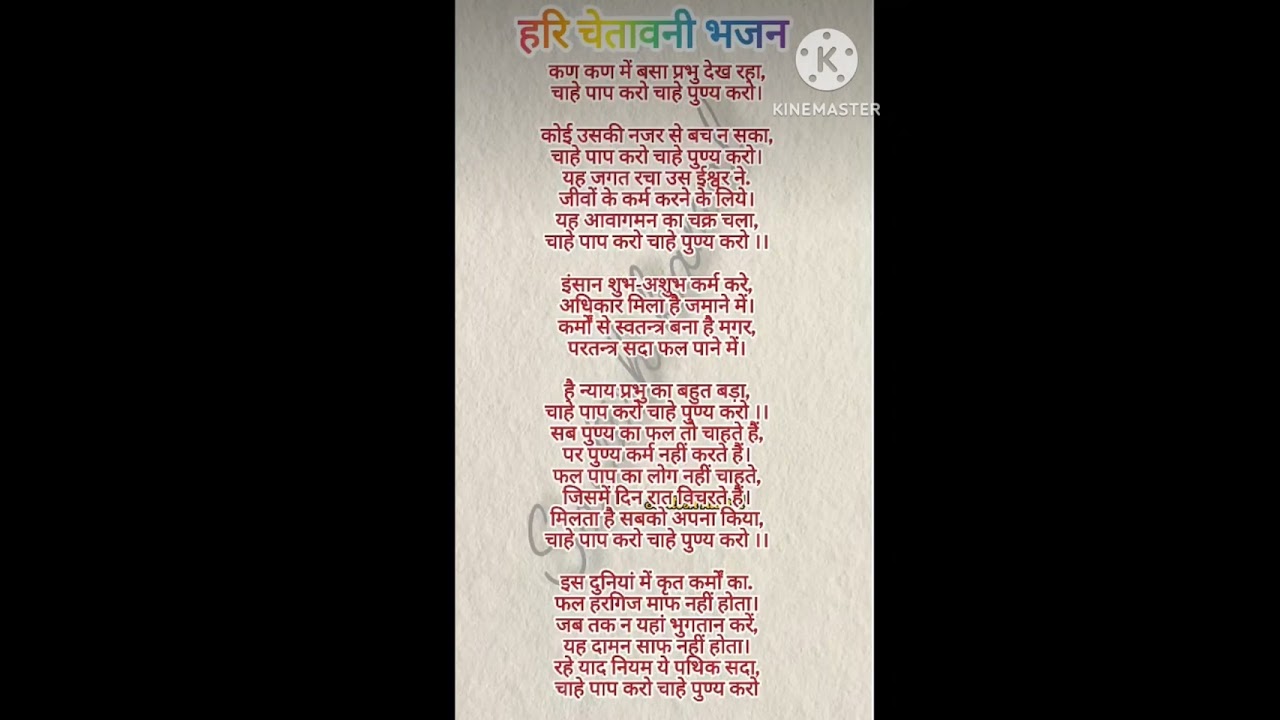 हरि चेतावनी भजन
KINEMASTER
कण कण में बसा प्रभु देख रहा,
चाहे पाप करो चाहे पुण्य करो।
कोई उसकी नजर से बच न सका,
चाहे पाप करो चाहे पुण्य करो।
यह जगत रचा उस ईश्वर ने.
जीवों के कर्म करने के लिये।
यह आवागमन का चक्र चला,
चाहे पाप करो चाहे पुण्य करो ।।
इंसान शुभ-अशुभ कर्म करे,
अधिकार मिला है जमाने में।
कर्मों से स्वतन्त्र बना है मगर,
परतन्त्र सदा फल पाने में।
है न्याय प्रभु का बहुत बड़ा,
चाहे पाप करो चाहे पुण्य करो ।।
सब पुण्य का फल तो चाहते हैं,
पर पुण्य कर्म नहीं करते हैं।
फल पाप का लोग नहीं चाहते,
जिसमें दिन रात विचरते हैं।
मिलता है सबको अपना किया,
चाहे पाप करो चाहे पुण्य करो ।।
इस दुनियां में कृत कर्मों का.
फल हरगिज माफ नहीं होता।
जब तक न यहां भुगतान करें,
यह दामन साफ नहीं होता।
रहे याद नियम ये पथिक सदा,
चाहे पाप करो चाहे पुण्य करो